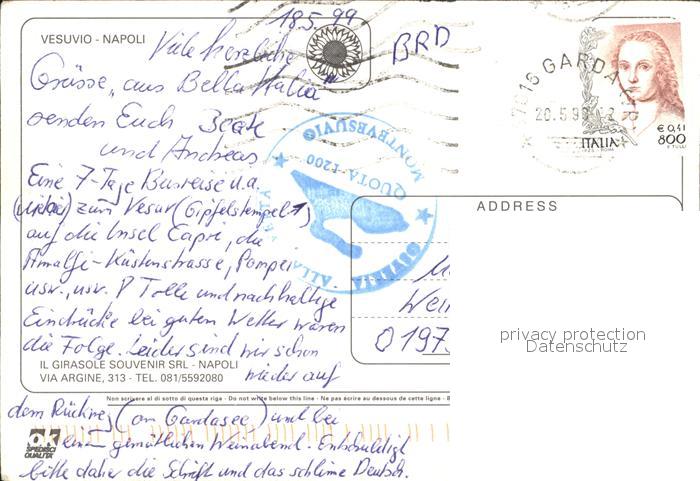 18.5.99
VESUVIO - NAPOLI
BRD
Viele herzliche
Grüsse „aus Bella Italia"
senden Euch Beate
und Andreas.
Eine 7-Tage Busreise u.a.
zum Vesuv (Gipfelstempel↑)
auf die Insel Capri, die
Amalfi-Küstenstrasse, Pompei
usw., usw. Tolle und nachhaltige
Eindrücke bei gutem Wetter waren
die Folge. Leider sind wir schon
wieder auf
IL GIRASOLE SOUVENIR SRL - NAPOLI
VIA ARGINE, 313 - TEL. 081/5592080
Non scrivere al di sotto di questa riga - Do not write below this line - Ne pas écrire au dessous de cette ligne - B
dem Rückweg (am Gardasee) und bei
einem gemütlichen Weinabend. Entschuldigt
bitte daher die Schrift und das schlimme Deutsch.
ok
SPEDISCI
QUALITA'
MONTE VESUVIO
QUOTA 1200
GARDA
20.5.99
€ 0,41
800
ITALIA
ADDRESS
Wei
O 197
privacy protection
Datenschutz